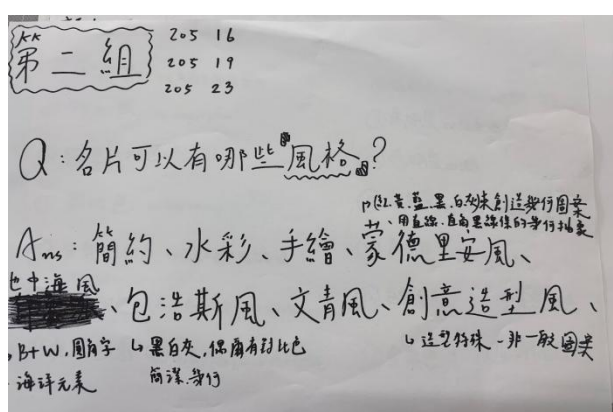 第二組
205 16
205 19
205 23
Q:名片可以有哪些『風格』?
紅、黃、藍、黑、白灰來創造幾何圖案
、用直線、直角黑線條的幾何抽象
Ans:簡約、水彩、手繪、蒙德里安風、
地中海風、包浩斯風、文青風、創意造型風、
B+W,圓角字
海洋元素
↳黑白灰,偶爾有對比色
簡潔、幾何
↳造型特殊-非一般圖